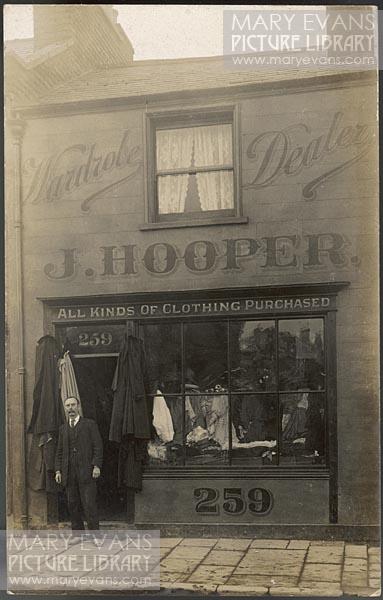 MARY EVANS
PICTURE LIBRARY
www.maryevans.com
Wardrobe Dealer
J. HOOPER.
ALL KINDS OF CLOTHING PURCHASED
259
259
MARY EVANS
PICTURE LIBRARY
www.maryevans.com